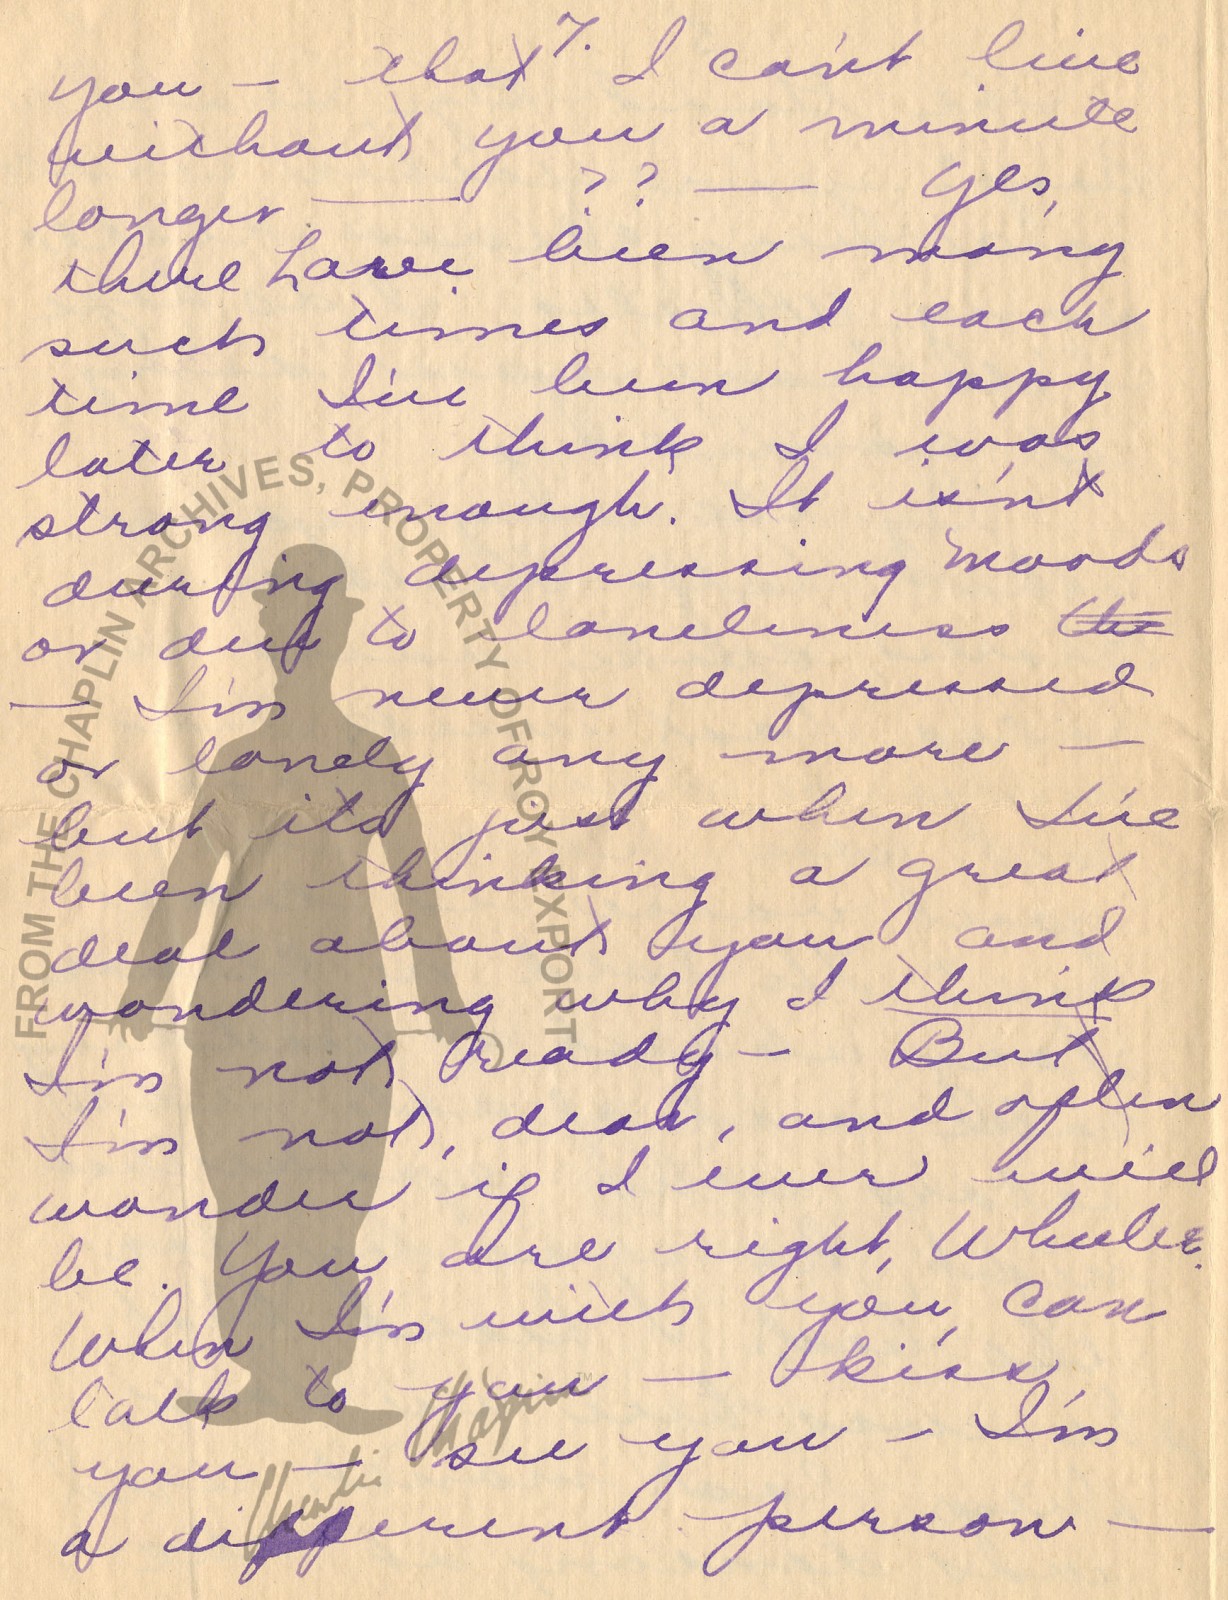 7.
you — that I can't live
without you a minute
longer — ?? — Yes,
there have been many
such times and each
time I've been happy
later to think I was
strong enough. It isn't
during depressing moods
or due to loneliness the
— I'm never depressed
or lonely any more —
but it's just when I've
been thinking a great
deal about you and
wondering why I think
I'm not ready — But
I'm not, dear, and often
wonder if I ever will
be. You are right,
When I'm with you, can
talk to you — kiss
you — see you — I'm
a different person —
FROM THE CHAPLIN ARCHIVES, PROPERTY OF ROY EXPORT
Charlie Chaplin